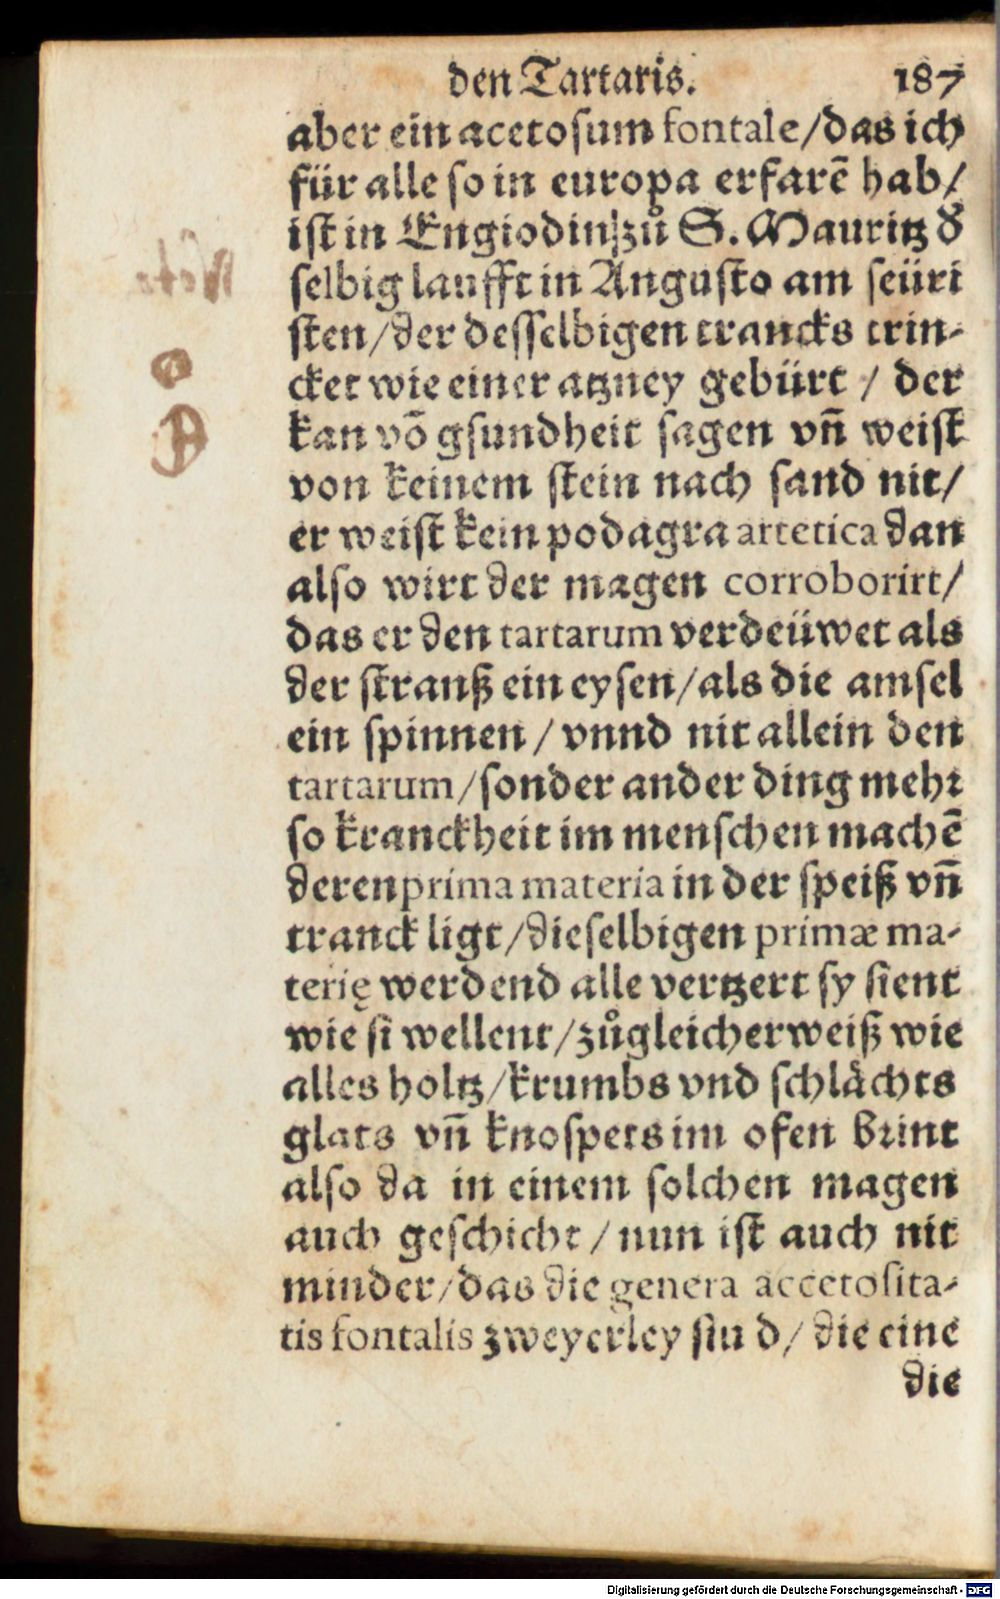 den Tartaris. 187
aber ein acetosum fontale/das ich
für alle so in europa erfarē hab/
ist in Engiodin/zů S. Mauritz d̕
selbig laufft in Augusto am seüri
sten/der desselbigen trancks trin-
cket wie einer atzney gebürt / der
kan võ gsundheit sagen vñ weist
von keinem stein nach sand nit/
er weist kein podagra artetica dan
also wirt der magen corroborirt/
das er den tartarum verdeüwet als
der strauß ein eysen/als die amsel
ein spinnen / vnnd nit allein den
tartarum/sonder ander ding mehr
so kranckheit im menschen machē
deren prima materia in der speiß vñ
tranck ligt/dieselbigen primæ ma-
terię werdend alle vertzert sy sient
wie si wellent/zůgleicherweiß wie
alles holtz/krumbs vnd schlächts
glats vñ knospets im ofen brint
also da in einem solchen magen
auch geschicht / nun ist auch nit
minder/das die genera accetosita-
tis fontalis zweyerley sind/ die eine
die
Digitalisierung gefördert durch die Deutsche Forschungsgemeinschaft - DFG